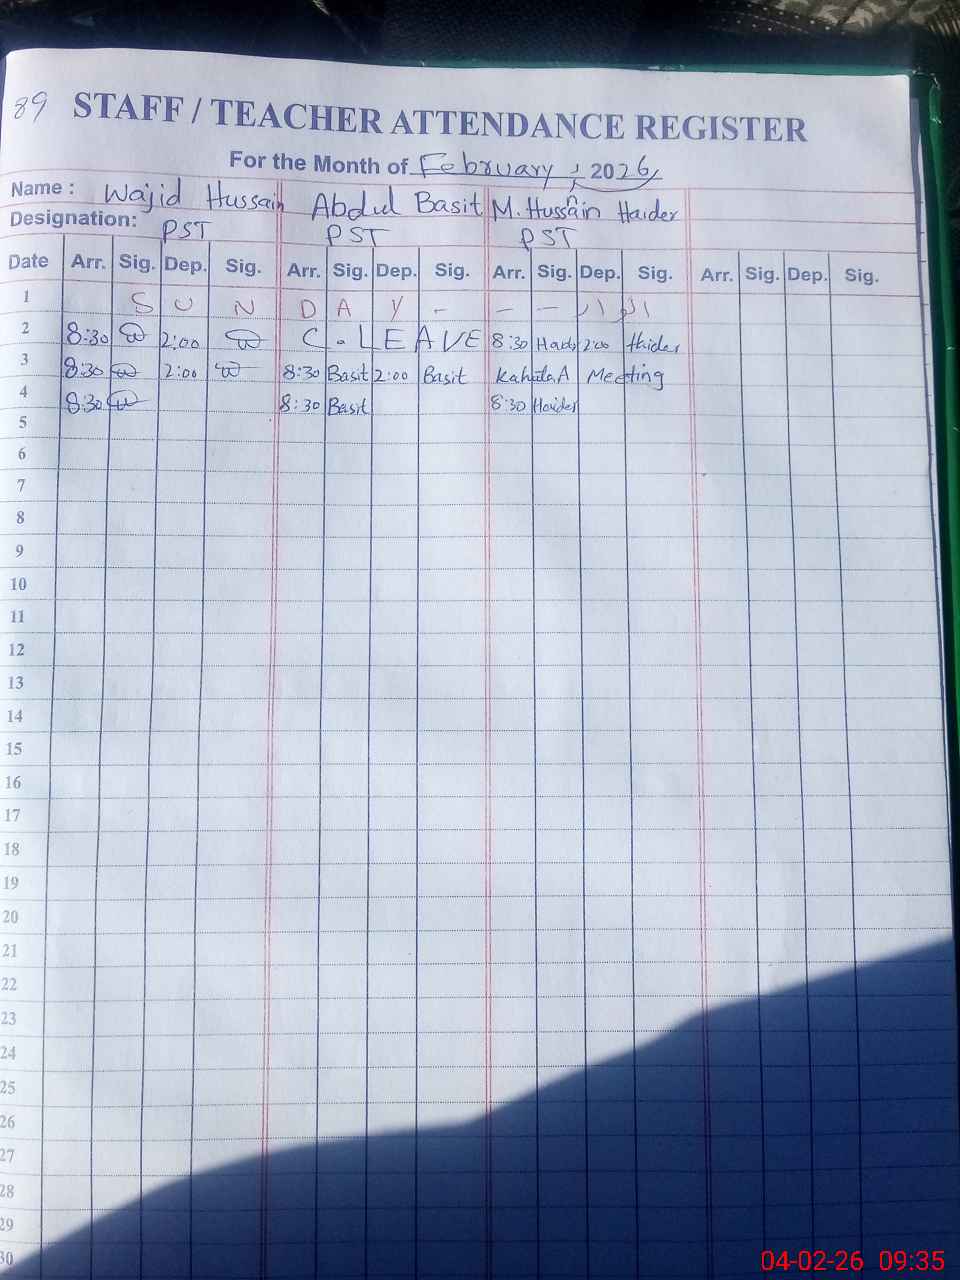 89 STAFF / TEACHER ATTENDANCE REGISTER
For the Month of February, 2026
Name : Wajid Hussain Abdul Basit M. Hussain Haider
Designation: PST PST PST
Date Arr. Sig. Dep. Sig. Arr. Sig. Dep. Sig. Arr. Sig. Dep. Sig. Arr. Sig. Dep. Sig.
1 S U N D A Y - - - اتوار
2 8:30 2:00 C. LEAVE 8:30 2:00 Haider
3 8:30 2:00 8:30 Basit 2:00 Basit Meeting
4 8:30 8:30 Basit 8:30 Haider
5
6
7
8
9
10
11
12
13
14
15
16
17
18
19
20
21
22
23
24
25
26
27
28
29
30
04-02-26 09:35